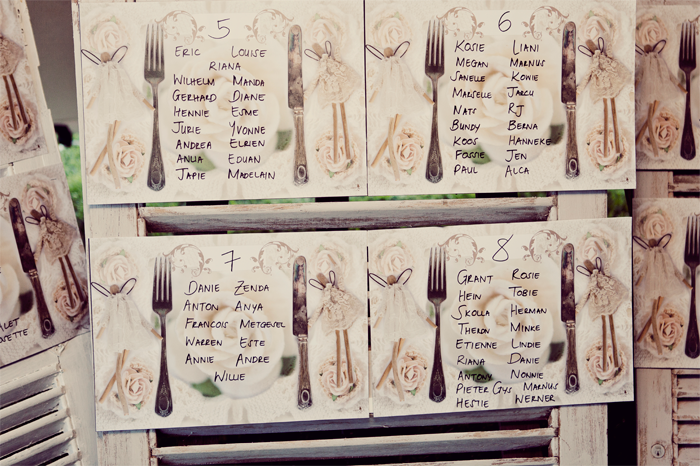 5
Eric Louise
Riana
Wilhelm Manda
Gerhard Diane
Hennie Esme
Jurie Yvonne
Andrea Elrien
Anlia Eduan
Japie Madelain
6
Kosie Liani
Megan Marnus
Sanelle Kowie
Marselle Jarcu
Nats RJ
Bundy Berna
Koos Hanneke
Fossie Jen
Paul Alca
7
Danie Zenda
Anton Anya
Francois Metgesel
Warren Este
Annie Andre
Willie
8
Grant Rosie
Hein Tobie
Skolla Herman
Theron Minke
Etienne Lindie
Riana Danie
Antony Nonnie
Pieter Gys Marnus
Hestie Werner